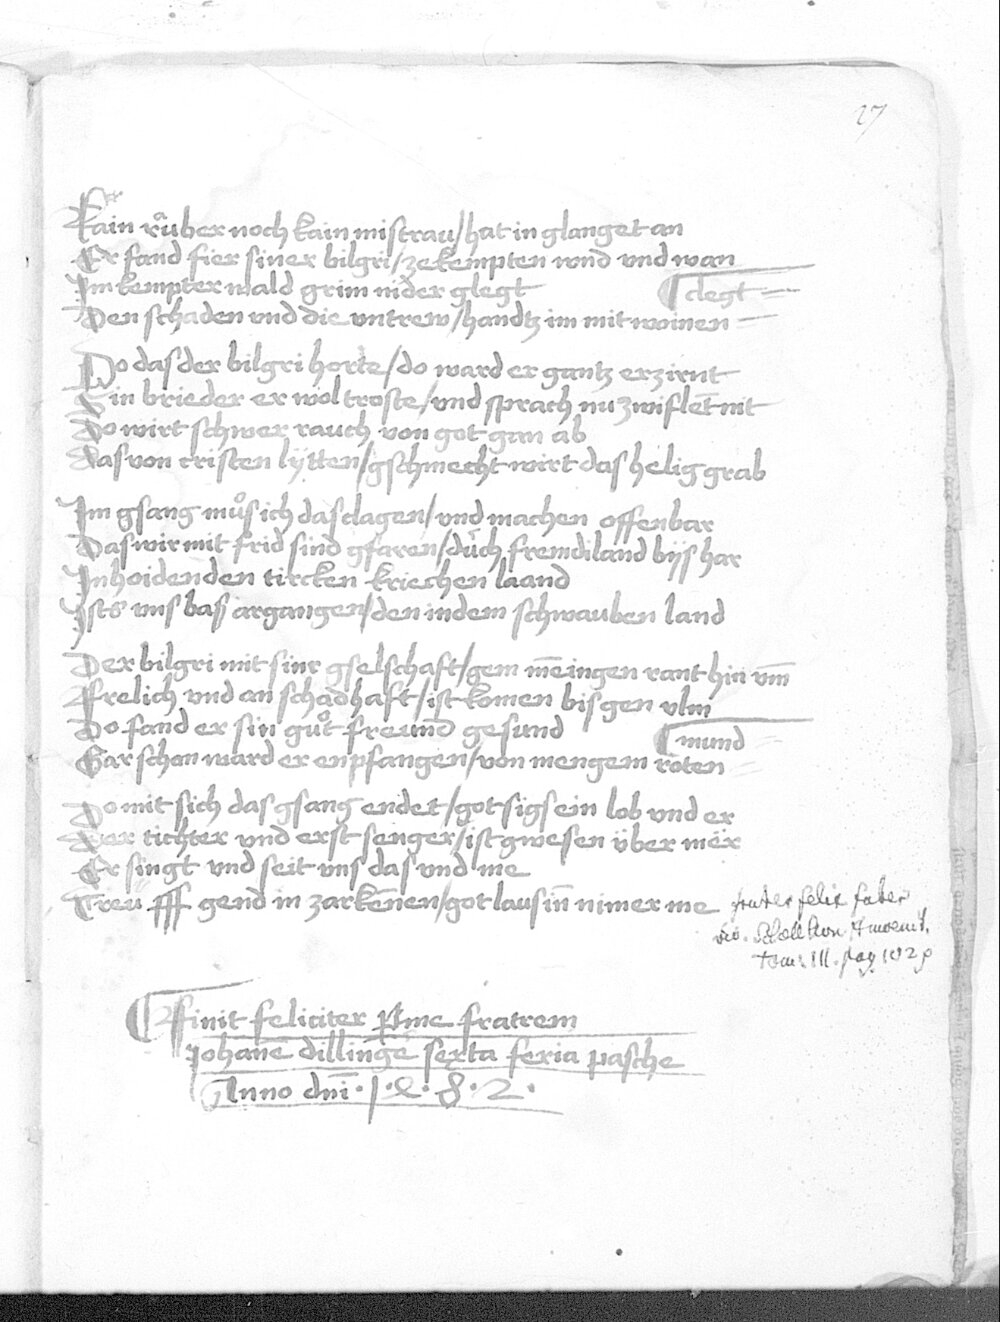 27
Kain rauber noch kain mistrau / hat in glanget an
Er fand fier siner bilgri / ze kempten wnd vnd wan
Im kempter wald grim nider glegt
clegt
Den schaden vnd die vntrew / handtz im mit woinen
Do das der bilgri horte / do ward er gantz erzirnt
Sin brieder er wol troste / vnd sprach nu zwiflet nit
Do wirt schwer rauch von got gan ab
Das von cristen lÿtten / gschmecht wirt das helig grab
Im gsang muͦs ich das clagen / vnd machen offenbar
Das wir mit frid sind gfaren / duch fremdi land bijs har
In hoidenden tircken kriechen laand
Ists vns bas argangen / den in dem schwauben land
Der bilgri mit sinr gselschaft / gem mēingen rant hin vm̄
Frelich vnd an schadhaft / ist komen bis gen vlm
Do fand er sin guͦt freund gesund
mund
Gar schon ward er enpfangen / von mengem roten
Do mit sich das gsang endet / got sig sein lob vnd er
Der tichter vnd erst senger / ist gwesen über mër
Er singt vnd seit vns das vnd me
Treu fff gend in zarkēnen / got laus in̄ nimer me
frater felix faber
vid. Schellhorn Amoenit.
Tom. III. pag
Finit feliciter p me fratrem
Johane dillinge sexta feria pasche
Anno dn̄i · 1 · 4 · 8 · 2 ·